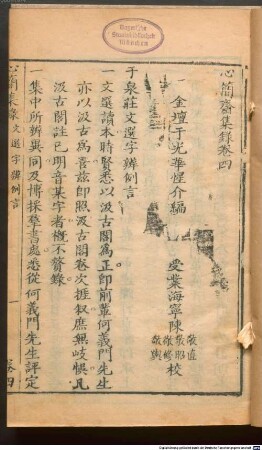 心簡齋集錄卷四
金壇于光華惺介編
受業海寧陳
敬直
敬昭
敬修
敬輿
校
于泉莊文選字辨例言
一文選讀本時賢悉以汲古閣爲正即前輩何義門先生
亦以汲古爲善兹即照汲古閣卷次挨叙庶無岐悞凡
汲古閣註已明音某字者槪不贅錄
一集中所辨異同及博採羣書處悉從何義門先生評定
心簡集錄
文選字辨例言
一
卷四
Bayerische
Staatsbibliothek
München